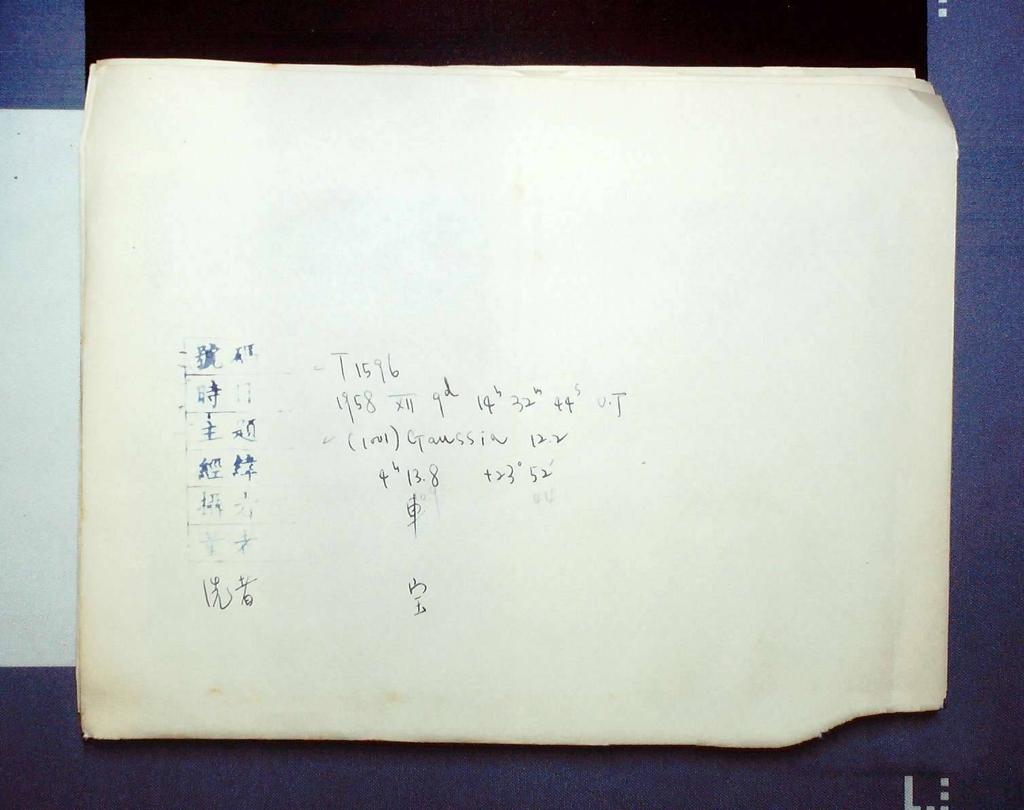 號碼 T1596
時日 1958 XII 9d 14h 32m 44s U.T
主題 (1001) Gaussia 12.2
經緯 4h 13.8 +23° 52'
攝者 車
洗者 宝